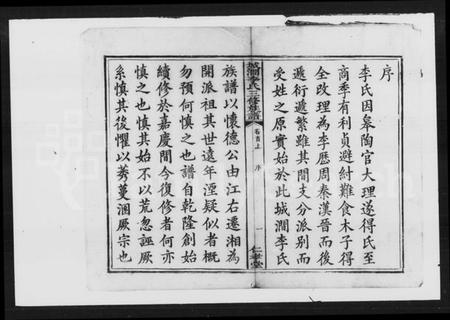 序
李氏因皋陶官大理遂得氏至
商季有利貞避紂難食木子得
全改理為李歷周秦漢晉而後
遞衍遞繁雖其間支分派別而
受姓之原實始於此城澗李氏
城澗李氏三修族譜
卷首上
序
一
仁孝堂
族譜以懷德公由江右遷湘為
開派祖其世遠年湮疑似者概
勿預何慎之也譜自乾隆創始
續修於嘉慶間今復修者何亦
慎之也慎其始不以荒忽誣厥
系慎其後懼以莠蔓溷厥宗也